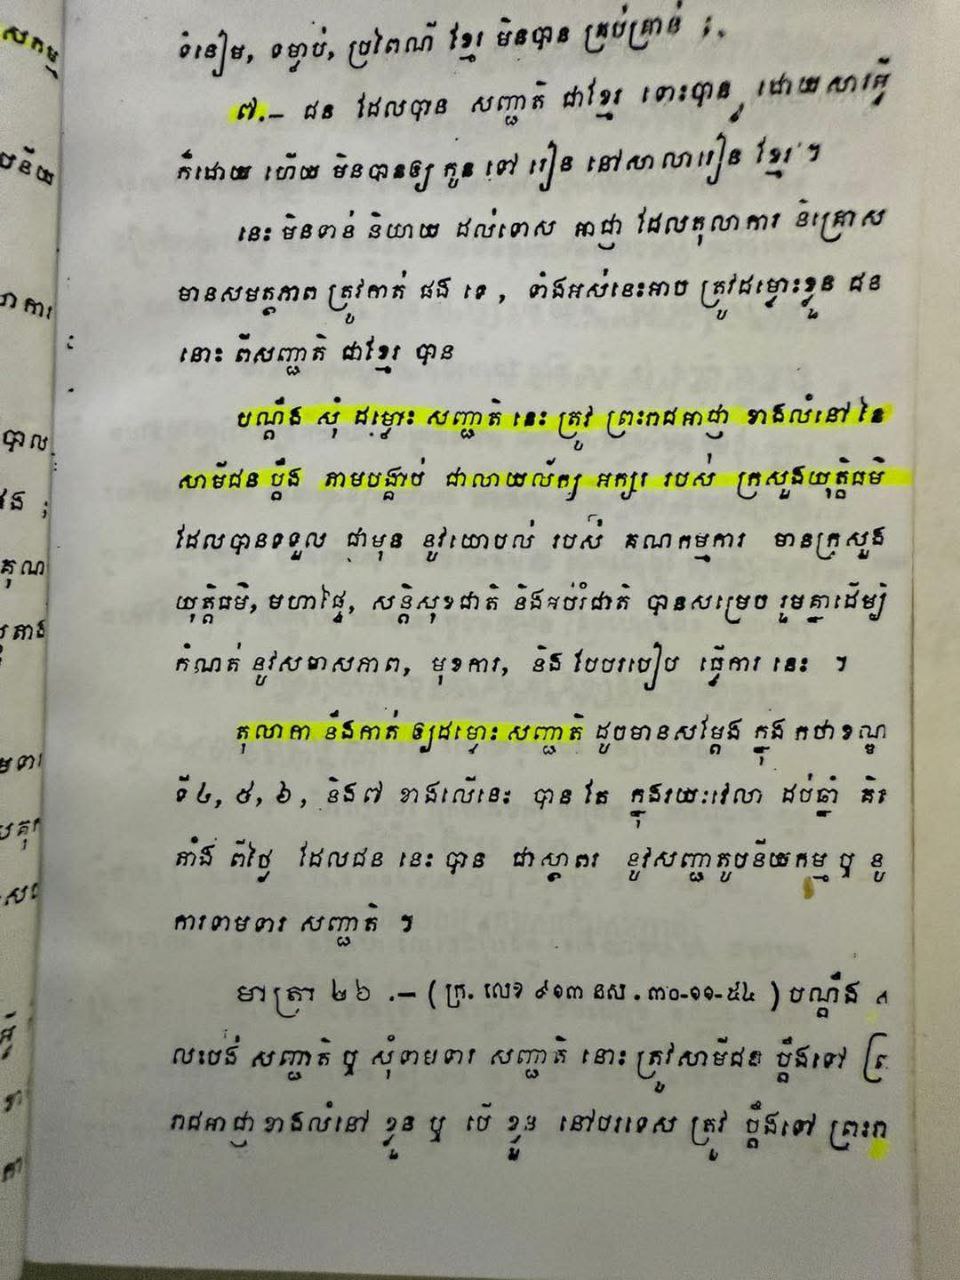 ទំនៀម, ទម្លាប់, ប្រពៃណី ខ្មែរ មិនបាន គ្រប់គ្រាន់ ;
សកម្ម
៧.– ជន ដែលបាន សញ្ជាតិ ជាខ្មែរ ទោះបាន ដោយសារអ្វី
ក៏ដោយ ហើយ មិនបានឲ្យ កូន ទៅ រៀន នៅសាលារៀន ខ្មែរ ។
នេះ មិនទាន់ និយាយ ដល់ទោស អាជ្ញា ដែលតុលាការ និគ្រោស
មានសមត្ថភាព ត្រូវកាត់ ផង ទេ , ទាំងអស់នេះអាច ត្រូវដម្ចោះខ្លួន ជន
នោះ ពីសញ្ជាតិ ជាខ្មែរ បាន
បណ្ដឹង សុំ ដម្ចោះ សញ្ជាតិ នេះ ត្រូវ ព្រះរាជអាជ្ញា ខាងលំនៅ នៃ
សាមីជន ប្ដឹង តាមបង្គាប់ ជាលាយល័ក្ខ អក្សរ របស់ ក្រសួងយុត្តិធម៌
ដែលបានទទួល ជាមុន នូវយោបល់ របស់ គណកម្មការ មានក្រសួង
យុត្តិធម៌, មហាផ្ទៃ, សន្តិសុខជាតិ និងអប់រំជាតិ បានសម្រេច រួមគ្នាដើម្បី
កំណត់ នូវសមាសភាព, មុខការ, និង បែបរបៀប ធ្វើការ នេះ ។
តុលាកា នឹងកាត់ ឲ្យដម្ចោះ សញ្ជាតិ ដូចមានសម្ដែង ក្នុង កថាខណ្ឌ
ទី ៤, ៥, ៦, និង៧ ខាងលើនេះ បាន តែ ក្នុងរយៈវេលា ដប់ឆ្នាំ គិត
តាំង ពីថ្ងៃ ដែលជន នេះ បាន ជាស្ថាពរ នូវសញ្ជាតូបនីយកម្ម ឬ នូ
ការទាមទារ សញ្ជាតិ ។
មាត្រា ២៦ .– ( ក្រ. លេខ ៩១៣ នស . ៣០-១១-៥៤ ) បណ្ដឹង
លះបង់ សញ្ជាតិ ឬ សុំទាមទារ សញ្ជាតិ នោះ ត្រូវសាមីជន ប្ដឹងទៅ ព្រ
រាជអាជ្ញា ខាងលំនៅ ខ្លួន ឬ បើ ខ្លួន នៅបរទេស ត្រូវ ប្ដឹងទៅ ព្រះរា